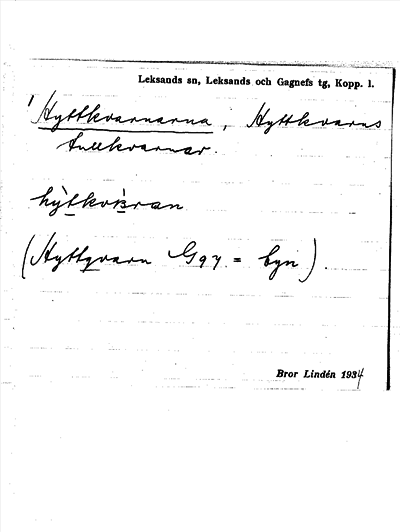 Leksands sn, Leksands och Gagnefs tg, Kopp. l.
Hyttkvarnarna, Hyttkvarns
tullkvarnar.
(Hyttqvarn = byn).
Bror Lindén 1934